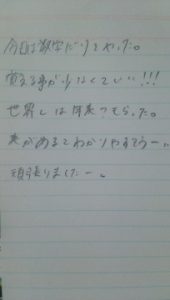 今日は数学だけをやった。
覚える事が少なくていい!!!
世界しは何表つもらった。
表があるとわかりやすてうー。
頑張りましたー。